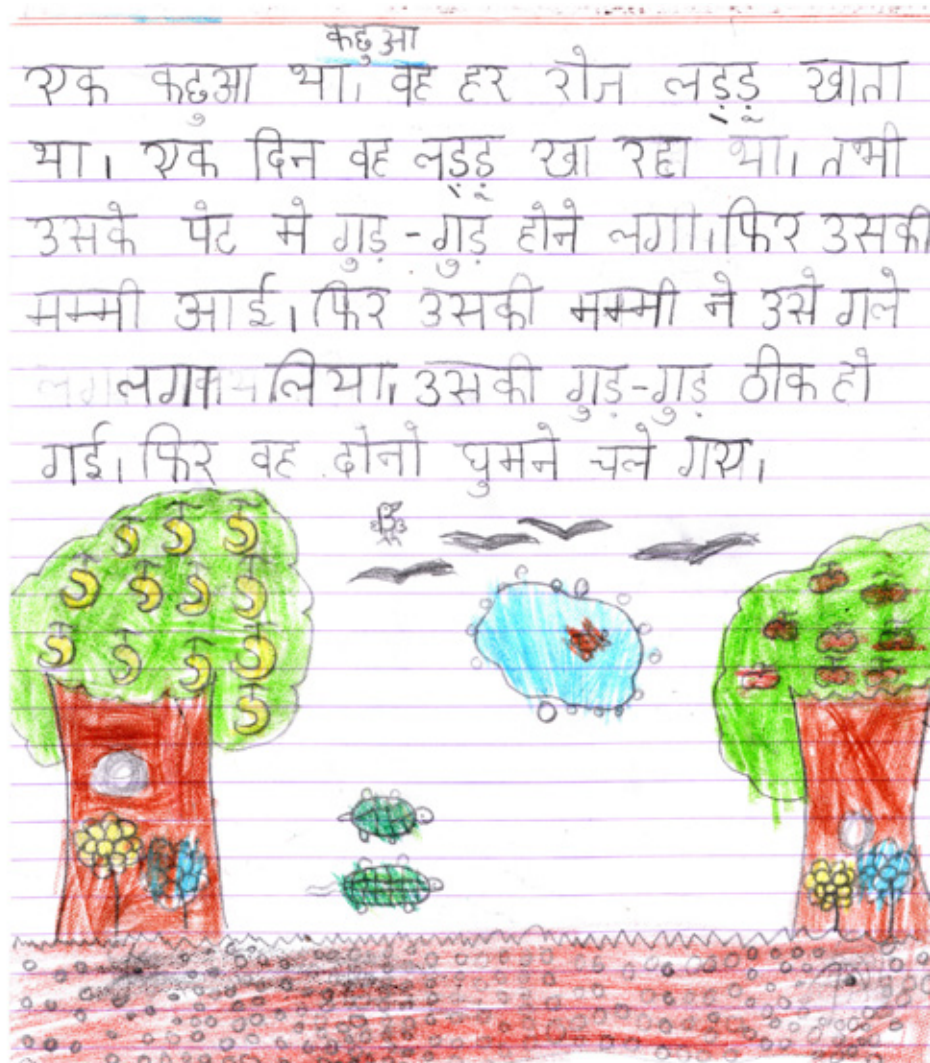 कछुआ
एक कछुआ था। वह हर रोज लड़्ड़ू खाता
था। एक दिन वह लड़्ड़ू खा रहा था। तभी
उसके पेट मे गुड़-गुड़ होने लगा। फिर उसकी
मम्मी आई। फिर उसकी मम्मी ने उसे गले
लिया। उसकी गुड़-गुड़ ठीक हो
गई। फिर वह दोनो घुमने चले गए।